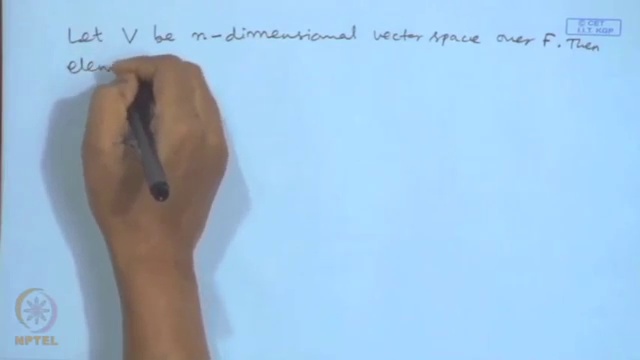 © CET
I.I.T. KGP
Let V be n-dimensional vector space over F. Then
elem
NPTEL